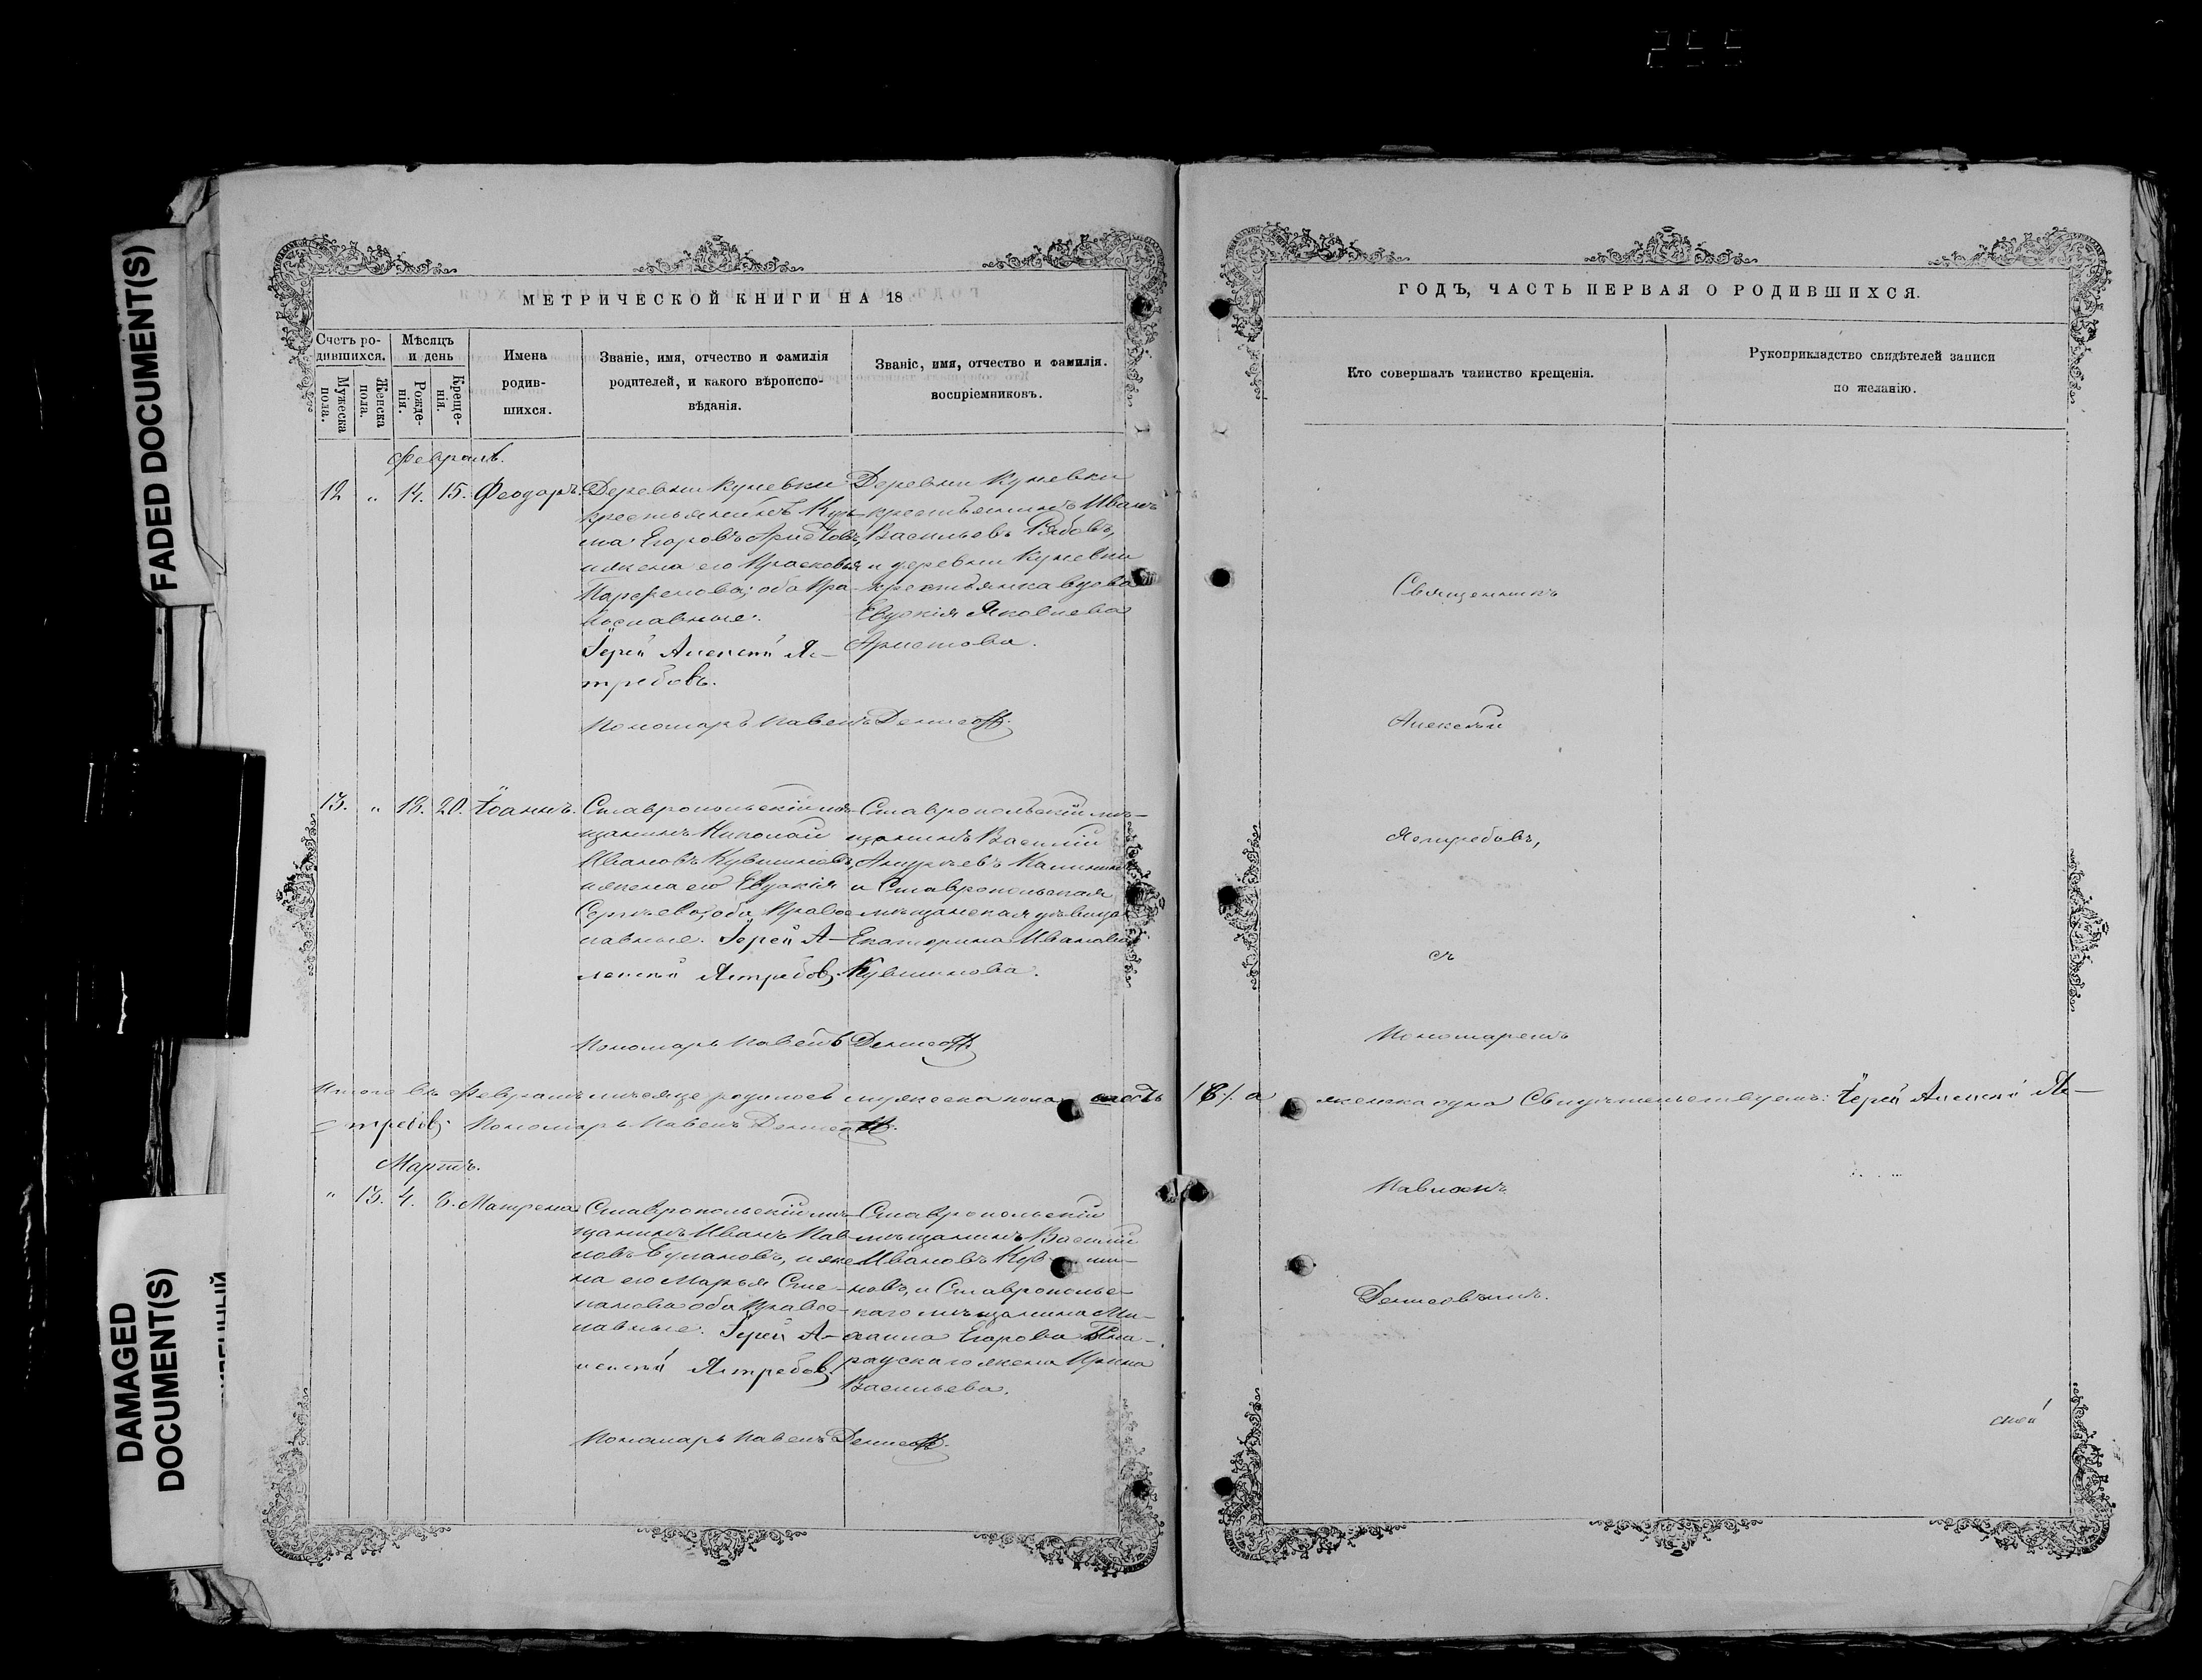 255
FADED DOCUMENT(S)
DAMAGED
DOCUMENT(S)
МЕТРИЧЕСКОЙ КНИГИ НА 18
Счетъ ро-
дившихся.
Мужеска
пола.
Женска
пола.
Мѣсяцъ
и день
Рожде-
нія.
Креще-
нія.
Имена
родив-
шихся.
Званіе, имя, отчество и фамилія
родителей, и какого вѣроиспо-
вѣданія.
Званіе, имя, отчество и фамилія.
воспріемниковъ.
Февраль.
12 " 14. 15. Феодоръ.
Деревни Куневки
крестьянинъ Кузь-
ма Егоровъ
и жена его Прасковья
Парфенова; оба Пра-
вославные.
Іерей Алексѣй Яс-
требовъ.
Деревни Куневки
крестьянинъ Иванъ
Васильевъ Рябовъ,
и деревни Куневки
крестьянка вдова
Евдокія Яковлева
Пономарь Павелъ Денисовъ.
13. " 18. 20. Іоаннъ.
Ставропольскій мѣ-
щанинъ Николай
Ивановъ Кувшиновъ,
и жена его Евдокія
Сергѣева, оба Правос-
лавные. Іерей А-
лексѣй Ястребовъ.
Ставропольскій мѣ-
щанинъ Василій
Андреевъ Калинин
и Ставропольская
мѣщанская дѣвица
Екатерина Иванова
Кувшинова.
Пономарь Павелъ Денисовъ.
Итого въ Февралѣ мѣсяцѣ родилось мужеска пола шесть
/6/. а женска одна Свидѣтельствуемъ: Іерей Алексѣй Яс-
требовъ. Пономарь Павелъ Денисовъ.
Мартъ.
" 13. 4. 8. Матрена
Ставропольскій мѣ-
щанинъ Иванъ Пав-
ловъ Булановъ, и же-
на его Марья Сте-
панова оба Правос-
лавные. Іерей А-
лексѣй Ястребовъ.
Ставропольскій
мѣщанинъ Василій
Ивановъ Кув ши-
новъ, и Ставропольс-
каго мѣщанина Ми-
хаила Егорова
жена Ирина
Васильева.
Пономарь Павелъ Денисовъ.
ГОДЪ, ЧАСТЬ ПЕРВАЯ О РОДИВШИХСЯ.
Кто совершалъ таинство крещенія.
Рукоприкладство свидѣтелей записи
по желанію.
Священникъ
Алексѣй
Ястребовъ,
съ
Пономаремъ
Павломъ
Денисовымъ.